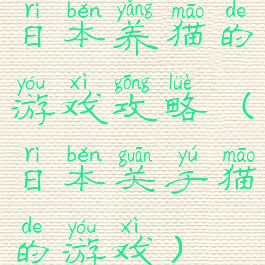 rì běn yǎng māo de
日本养猫的
yóu xì gōng lüè
游戏攻略（
rì běn guān yú māo
日本关于猫
de yóu xì
的游戏）